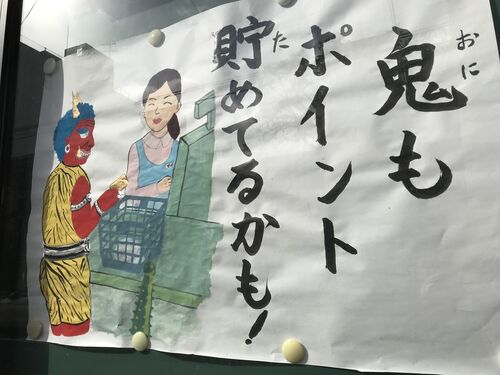 鬼も
おに
ポイント
貯めてるかも!
た